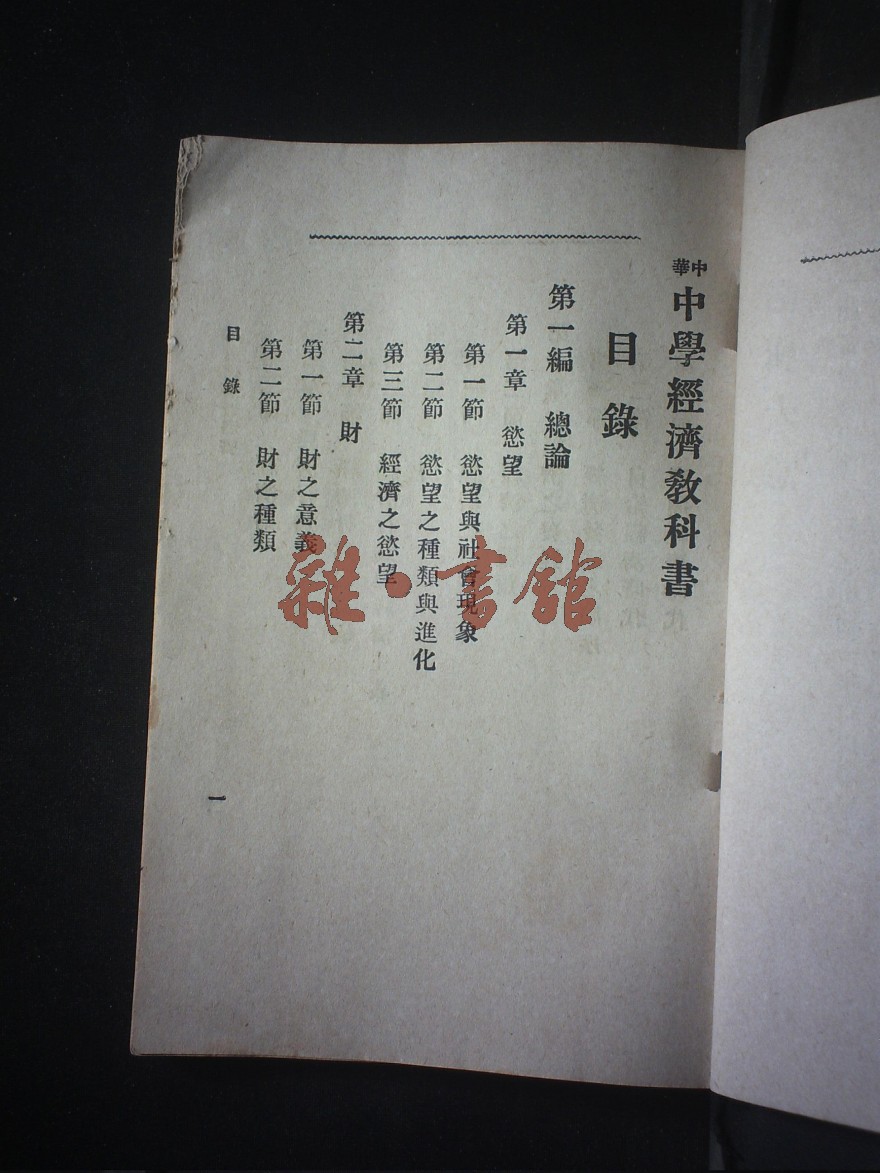 中華
中學經濟教科書
目錄
第一編 總論
第一章 慾望
第一節 慾望與社會現象
第二節 慾望之種類與進化
第三節 經濟之慾望
第二章 財
第一節 財之意義
第二節 財之種類
目錄
一
雜·書館